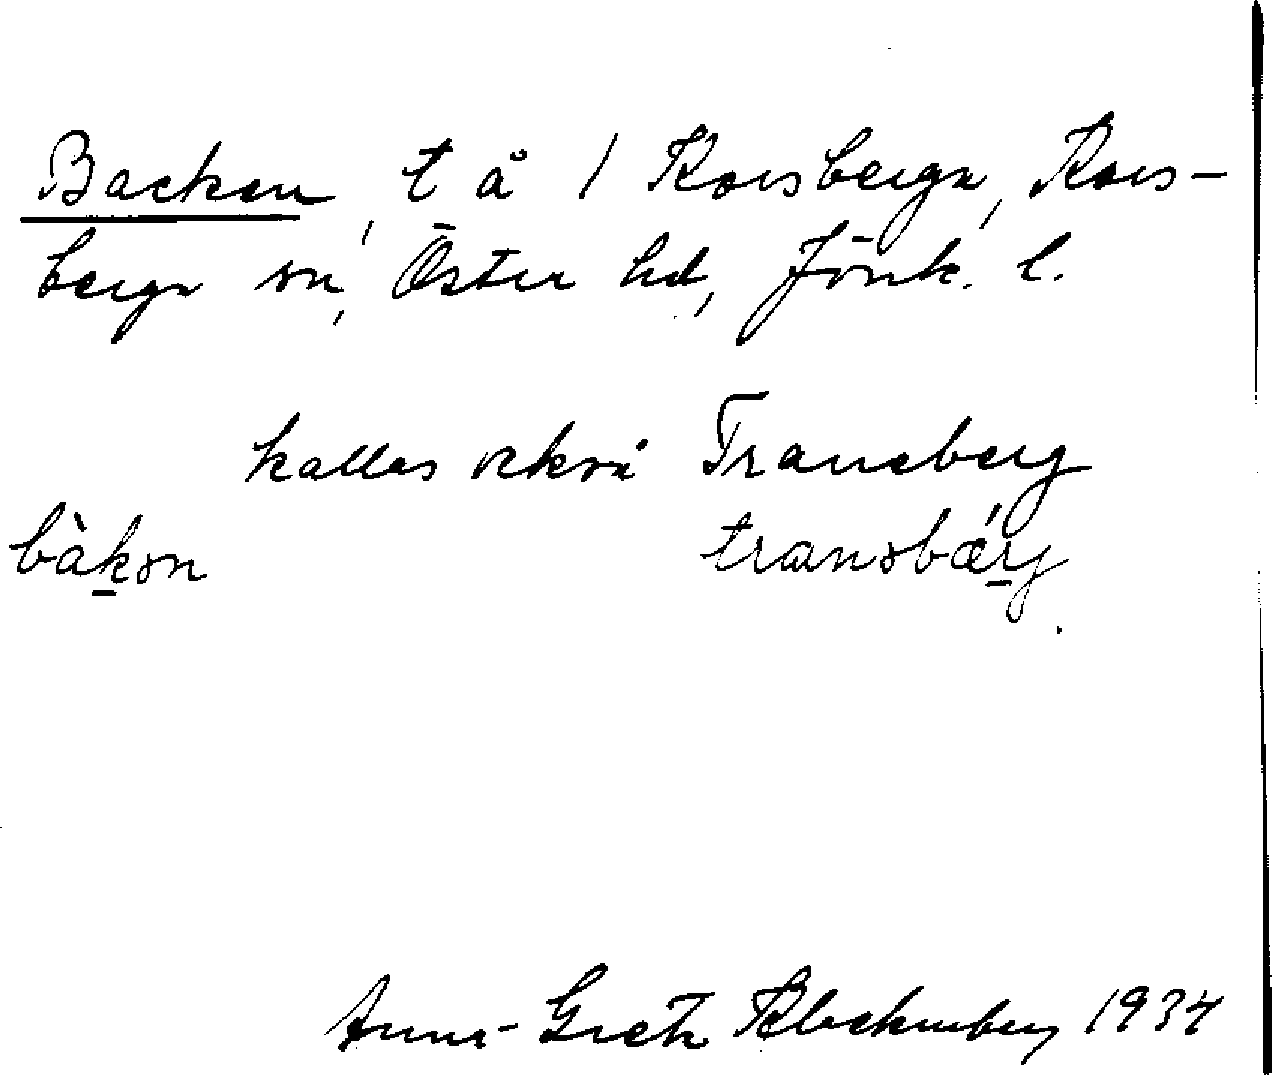 Backen, t å 1 Korsberga, Kors-
berga sn, Öster hd, Jönk. l.
kallas också Traneberg
bàkən tranəbǽrj
Anna-Greta Blockenberg 1934